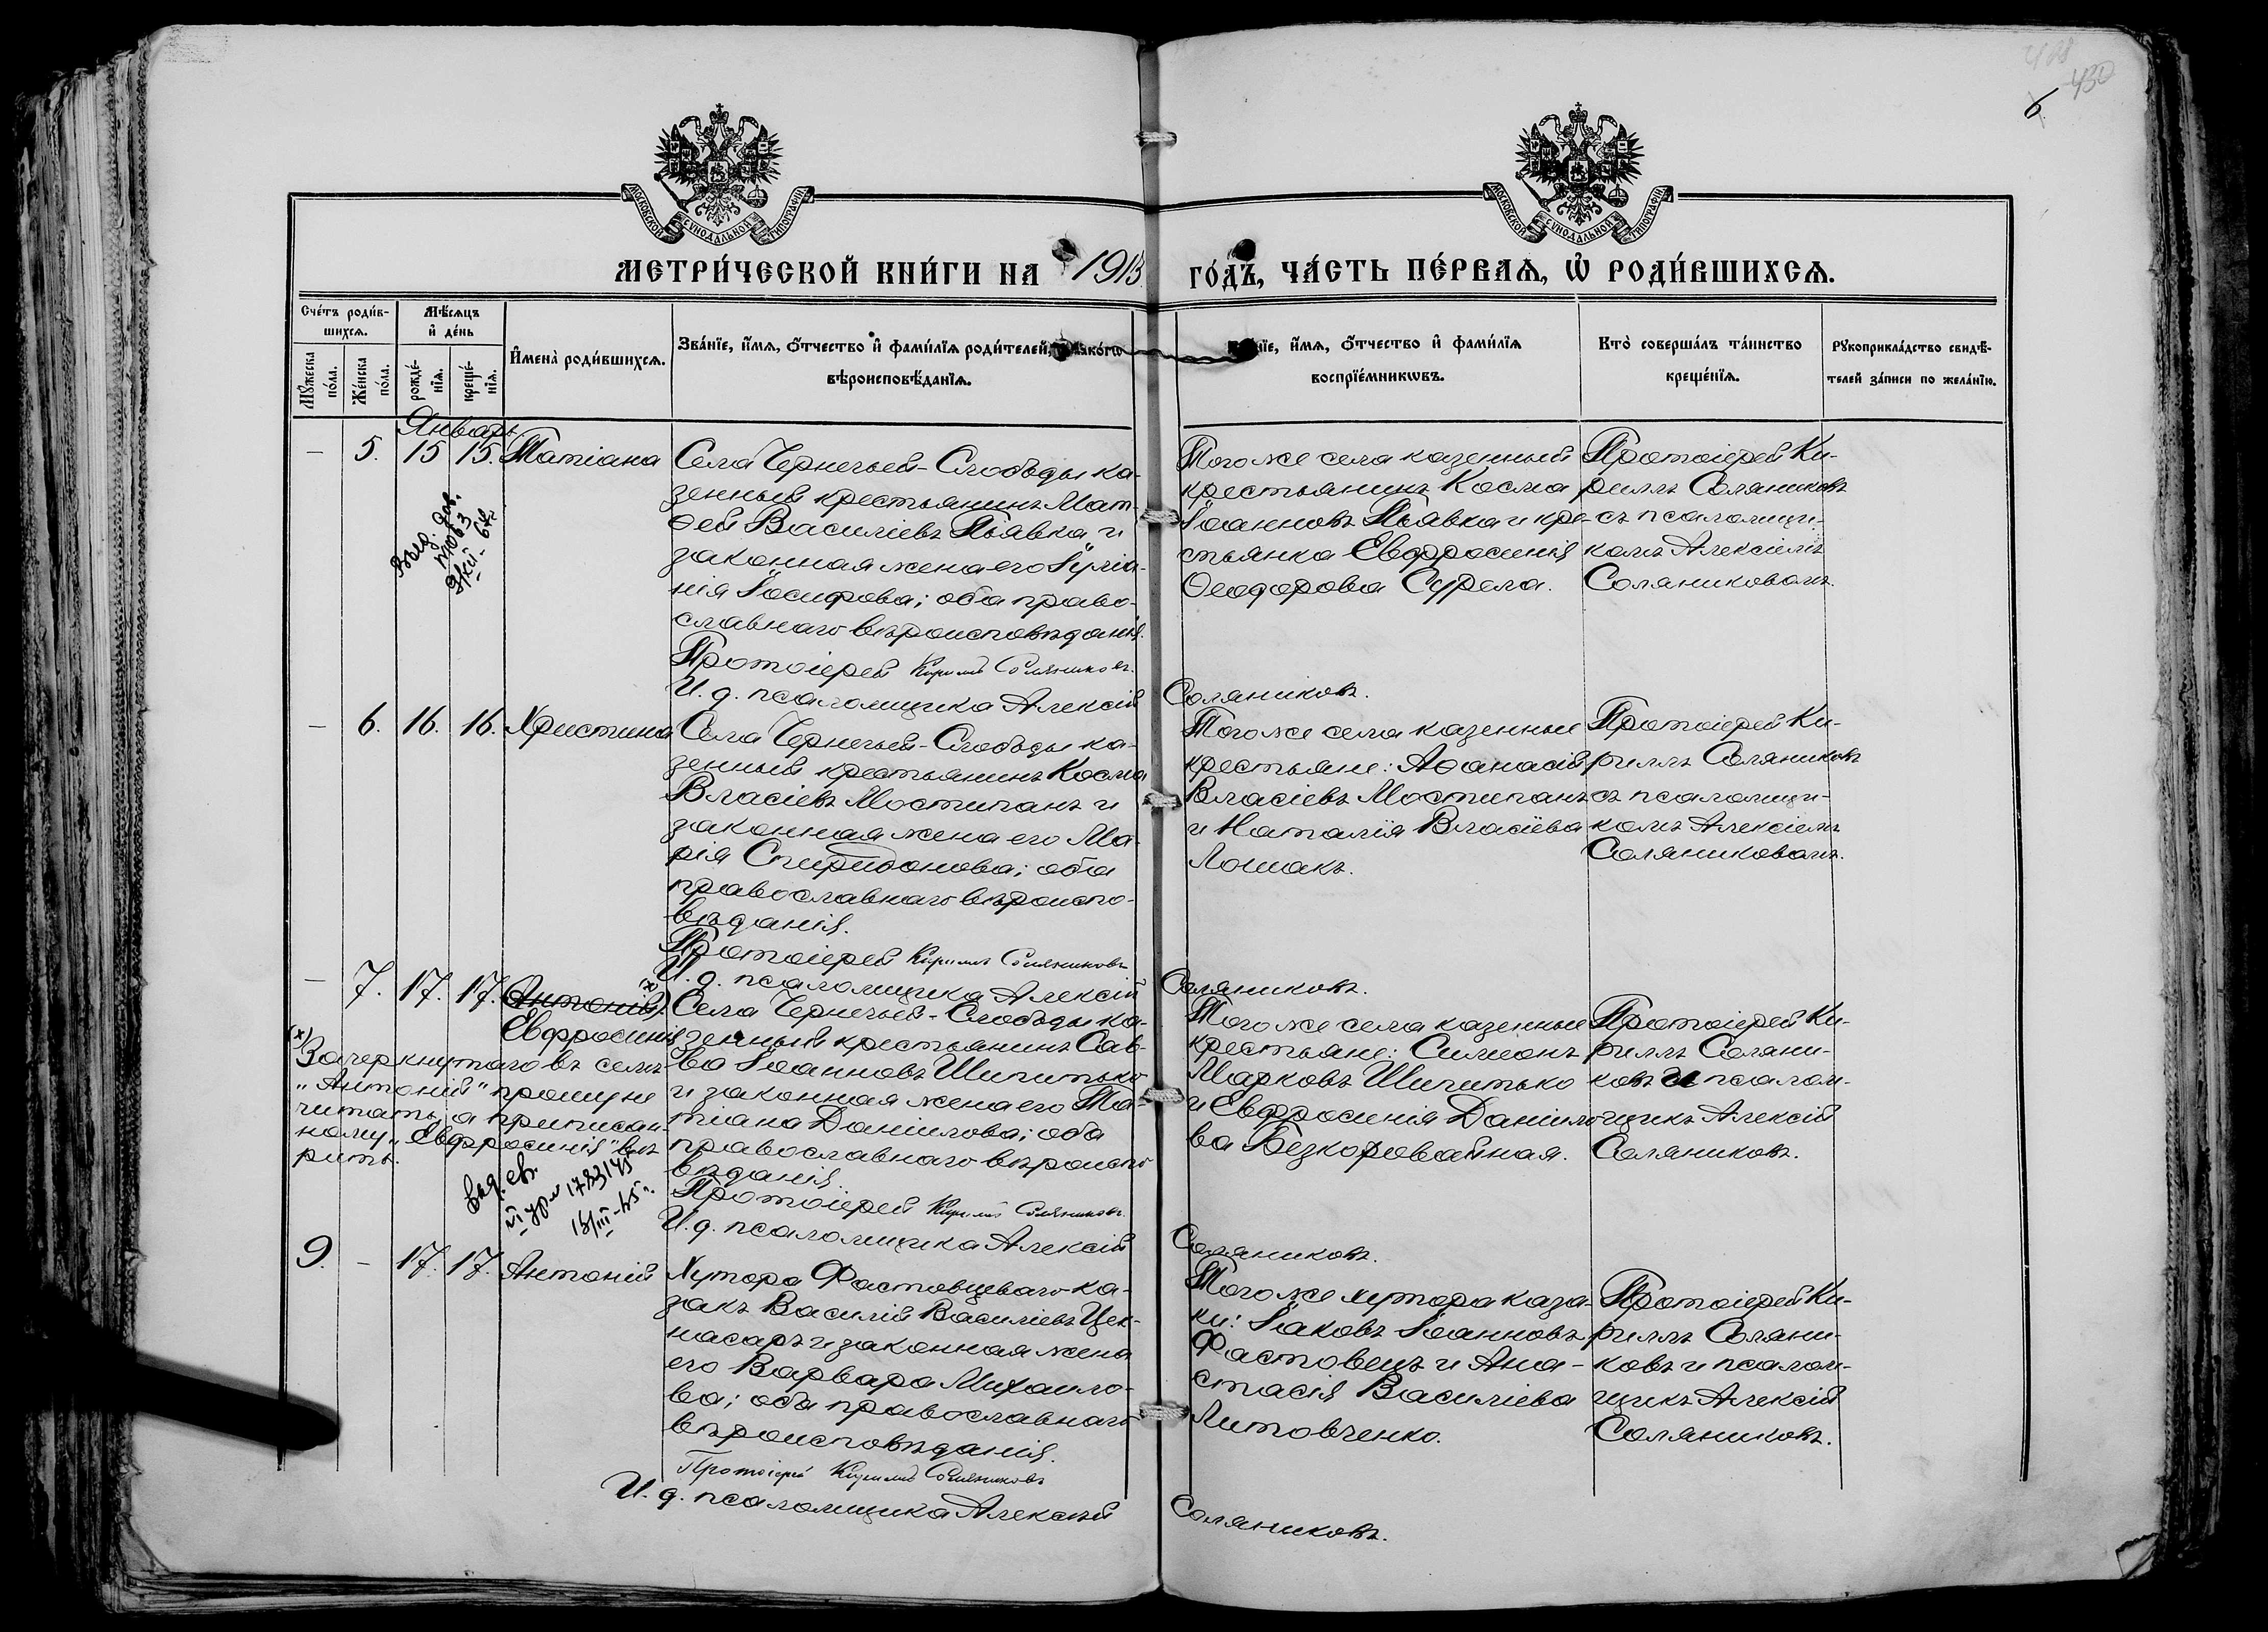 430
6
МОСКОВСКОЙ СѴНОДАЛЬНОЙ ТИПОГРАФІИ
МОСКОВСКОЙ СѴНОДАЛЬНОЙ ТИПОГРАФІИ
МЕТРИ́ЧЕСКОЙ КНИ́ГИ НА 1913
ГО́ДЪ, ЧА́СТЬ ПЕ́РВАѦ, Ѿ РОДИ́ВШИХСѦ.
Сче́тъ роди́в-
шихсѧ.
Мꙋ́жеска
по́ла.
Же́нска
по́ла.
Мѣ́сѧцъ
и҆ де́нь
рожде́-
нїѧ.
креще́-
нїѧ.
И҆мена̀ роди́вшихсѧ.
Зва́нїе, и҆́мѧ, ѻ҆́тчество и҆ фами́лїѧ роди́телей, како́гѡ
вѣроисповѣ́данїѧ.
и҆́мѧ, ѻ҆́тчество и҆ фами́лїѧ
воспрїе́мникѡвъ.
Кто̀ соверша́лъ та́инство
креще́нїѧ.
Рꙋкоприкла́дство свидѣ́-
телей за́писи по жела́нїю.
Январь
— 5. 15 15. Татіана
Села Чернечьей-Слободы ка-
зенный крестьянинъ Мат-
ѳей Василіевъ Пьявка и
законная жена его Іуліа-
нія Іосифова; оба право-
славнаго вѣроисповѣданія.
Протоіерей Кириллъ Соляниковъ.
И. д. псаломщика Алексій
Того же села казенный
крестьянинъ Косма
Іоанновъ Пьявка и кре-
стьянка Евфросинія
Ѳеодорова Сурела.
Соляниковъ.
Протоіерей Ки-
риллъ Соляниковъ
съ псаломщи-
комъ Алексіемъ
Соляниковымъ.
— 6. 16. 16. Христина
Села Чернечьей-Слободы ка-
зенный крестьянинъ Косма
Власіевъ Мостипанъ и
законная жена его Ма-
рія Спиридонова; оба
православнаго вѣроиспо-
вѣданія.
Протоіерей Кириллъ Соляниковъ
И. д. псаломщика Алексій
Того же села казенные
крестьяне: Аѳанасій
Власіевъ Мостипанъ
и Наталія Власіева
Лошакъ.
Соляниковъ.
Протоіерей Ки-
риллъ Соляниковъ
съ псаломщи-
комъ Алексіемъ
Соляниковымъ.
— 7. 17. 17. Антоній (х)
Евфросинія
(х)
Зачеркнутаго въ семъ
„Антоній" прошу не
читать, а приписан-
ному „Евфросинія" вѣ-
рить.
Села Чернечьей-Слободы ка-
зенный крестьянинъ Сав-
ва Іоанновъ Шипитько
и законная жена его Та-
тіана Даніилова; оба
православнаго вѣроиспо-
вѣданія.
Протоіерей Кириллъ Соляниковъ.
И. д. псаломщика Алексій
Того же села казенные
крестьяне: Симеонъ
Марковъ Шипитько
и Евфросинія Даніило-
ва Безкоровайная.
Соляниковъ.
Протоіерей Ки-
риллъ Соляни-
ковъ и псалом-
щикъ Алексій
Соляниковъ.
9. — 17. 17. Антоній
Хутора Фастовцеваго ка-
закъ Василій Василіевъ Цех-
насаръ и законная жена
его Варвара Михаило-
ва; оба православнаго
вѣроисповѣданія.
Протоіерей Кириллъ Соляниковъ
И. д. псаломщика Алексѣй
Того же хутора каза-
ки: Іаковъ Іоанновъ
Фастовецъ и Ана-
стасія Василіева
Литовченко.
Соляниковъ.
Протоіерей Ки-
риллъ Соляни-
ковъ и псалом-
щикъ Алексій
Соляниковъ.